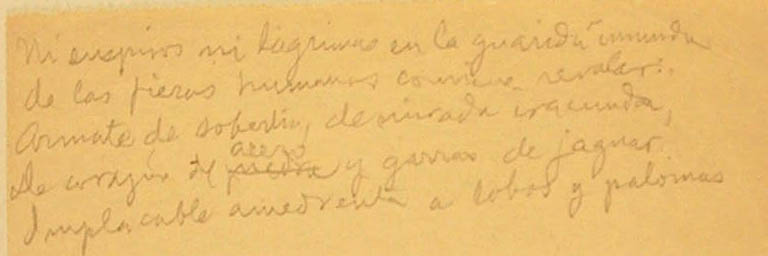 Ni suspiros ni lágrimas en la guarida inmunda
de las fieras humanas conviene revelar:
Armate de soberbia, de mirada iracunda,
De corazón de acero piedra y garras de jaguar.
Implacable amedrenta a lobos y palomas